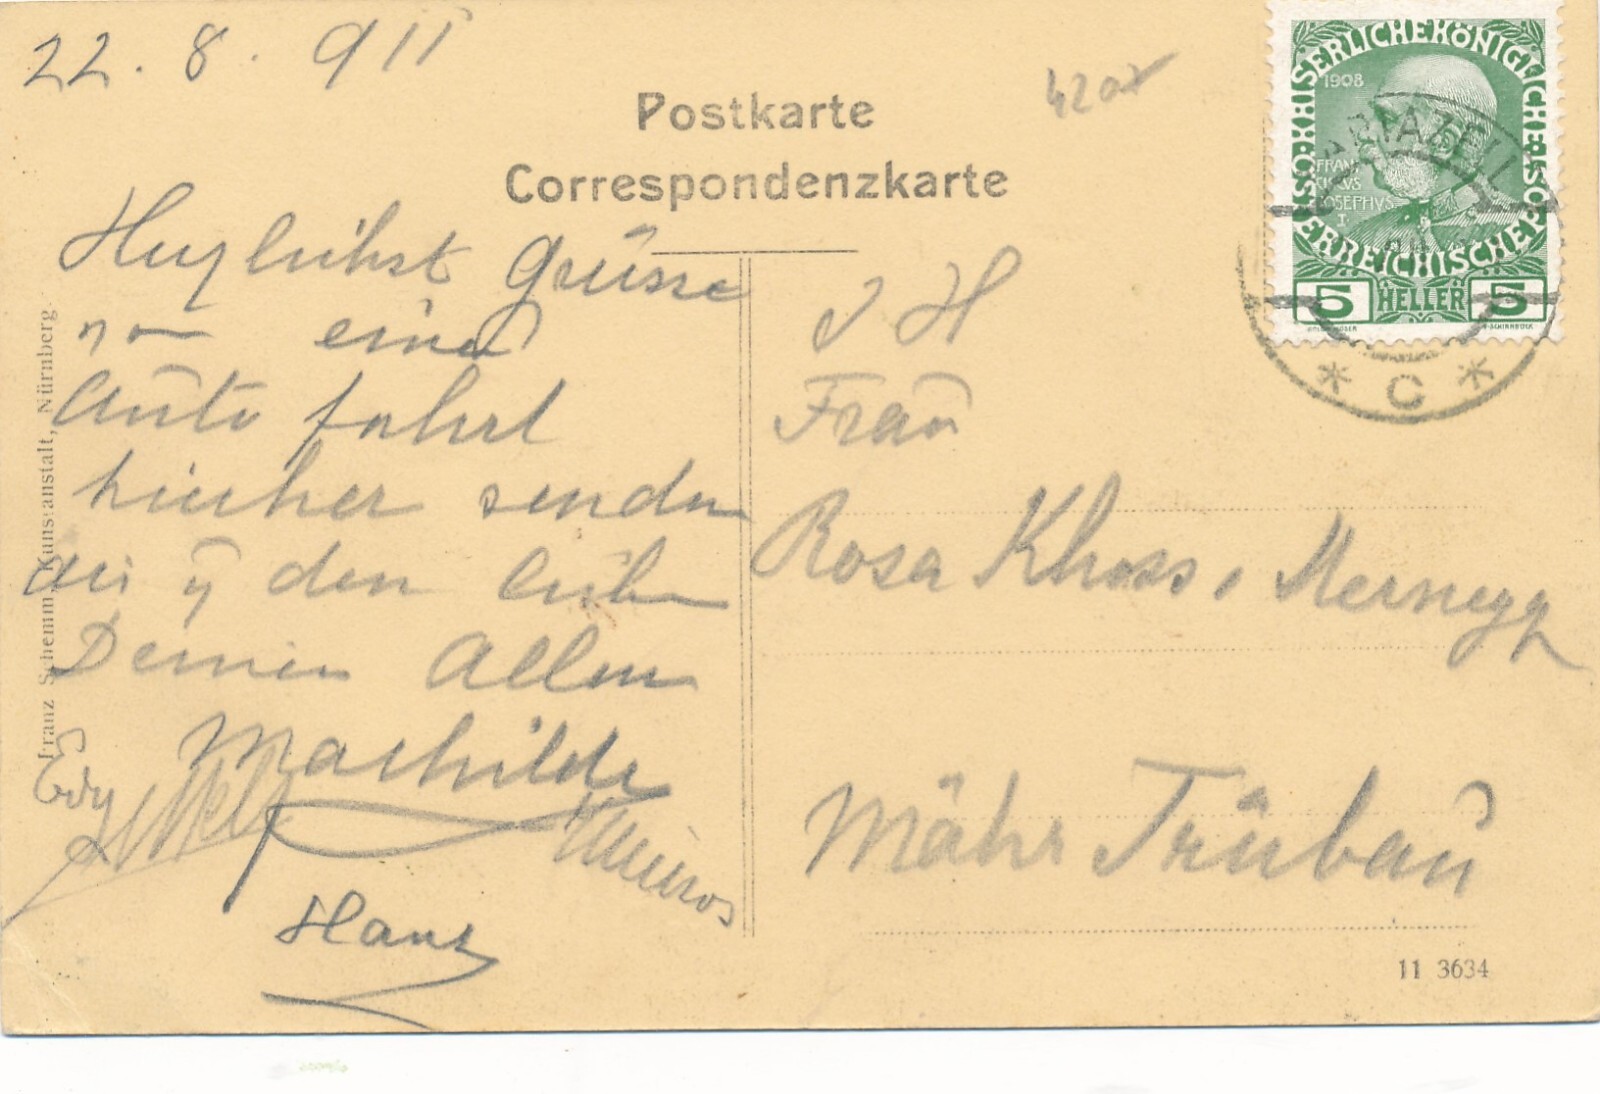 22. 8. 911
4207
Postkarte
Correspondenzkarte
KAISERLICHE KÖNIGLICHE ÖSTERREICHISCHE POST
1908
FRANCISCVS
IOSEPHVS
I.
5 HELLER 5
MARIAZELL
* C *
Herzlichst Grüsse
von einer
Auto fahrt
hieher senden
dir u den lieben
Deinen Allen
Mathilde
Edy
Hans
J H
Frau
Rosa Kloss, Mernegg
Mähr Trübau
11 3634
Franz Schemm, Kunstanstalt, Nürnberg